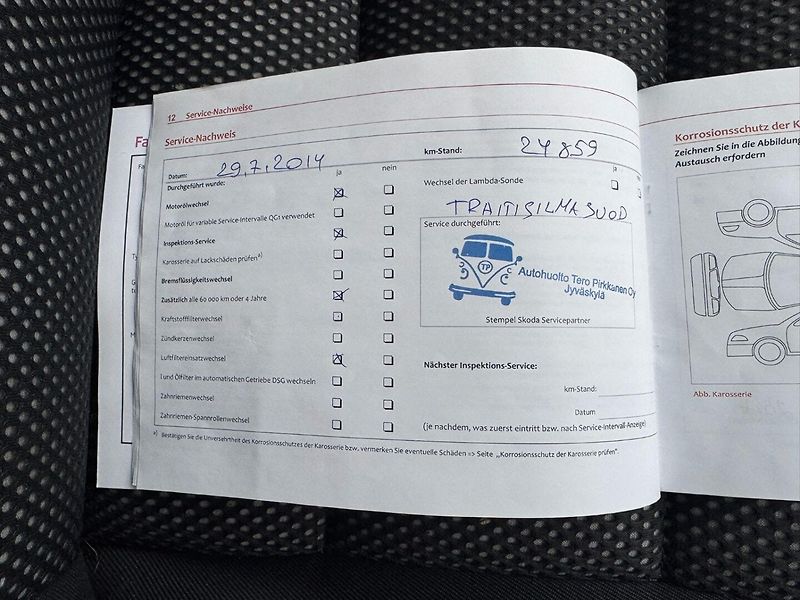 12 Service-Nachweise
Service-Nachweis
Datum: 29.7.2014
ja nein
Durchgeführt wurde:
Motorölwechsel
Motoröl für variable Service-Intervalle QG1 verwendet
Inspektions-Service
Karosserie auf Lackschäden prüfen a)
Bremsflüssigkeitswechsel
Zusätzlich alle 60 000 km oder 4 Jahre
Kraftstofffilterwechsel
Zündkerzenwechsel
Luftfiltereinsatzwechsel
Öl und Ölfilter im automatischen Getriebe DSG wechseln
Zahnriemenwechsel
Zahnriemen-Spannrollenwechsel
km-Stand:
ja
Wechsel der Lambda-Sonde
Service durchgeführt:
TP
Autohuolto Tero Pirkkanen Oy
Jyväskylä
Stempel Skoda Servicepartner
Nächster Inspektions-Service:
km-Stand:
Datum
(je nachdem, was zuerst eintritt bzw. nach Service-Intervall-Anzeige)
a) Bestätigen Sie die Unversehrtheit des Korrosionsschutzes der Karosserie bzw. vermerken Sie eventuelle Schäden => Seite „Korrosionsschutz der Karosserie prüfen“.
Korrosionsschutz der K
Zeichnen Sie in die Abbildung
Austausch erfordern
Abb. Karosserie